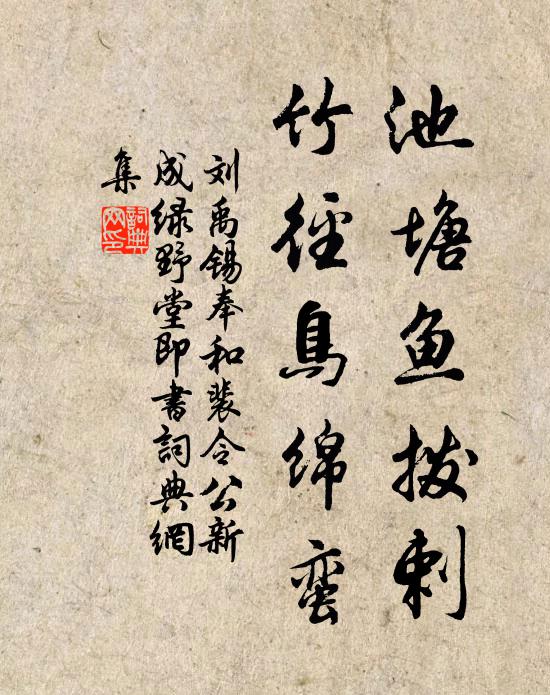 池塘鱼拨剌
竹径鸟绵蛮
刘禹锡奉和裴令公新
成绿野堂即书詞典網
集
詞典網印